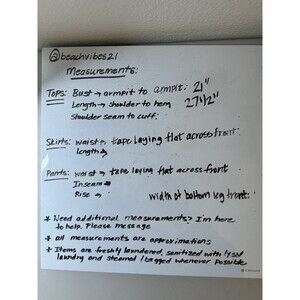 @beachvibes21
Measurements:
Tops: Bust → armpit to armpit: 21"
Length → shoulder to hem 27 1/2"
Shoulder seam to cuff:
Skirts: waist → tape laying flat across front.
Length →
Pants: waist → tape laying flat across front
Inseam →
Rise → width of bottom leg front:
* Need additional measurements? I'm here
to help. Please message
* all measurements are approximations
* Items are freshly laundered, sanitized with lysol
laundry and steamed / bagged whenever possible